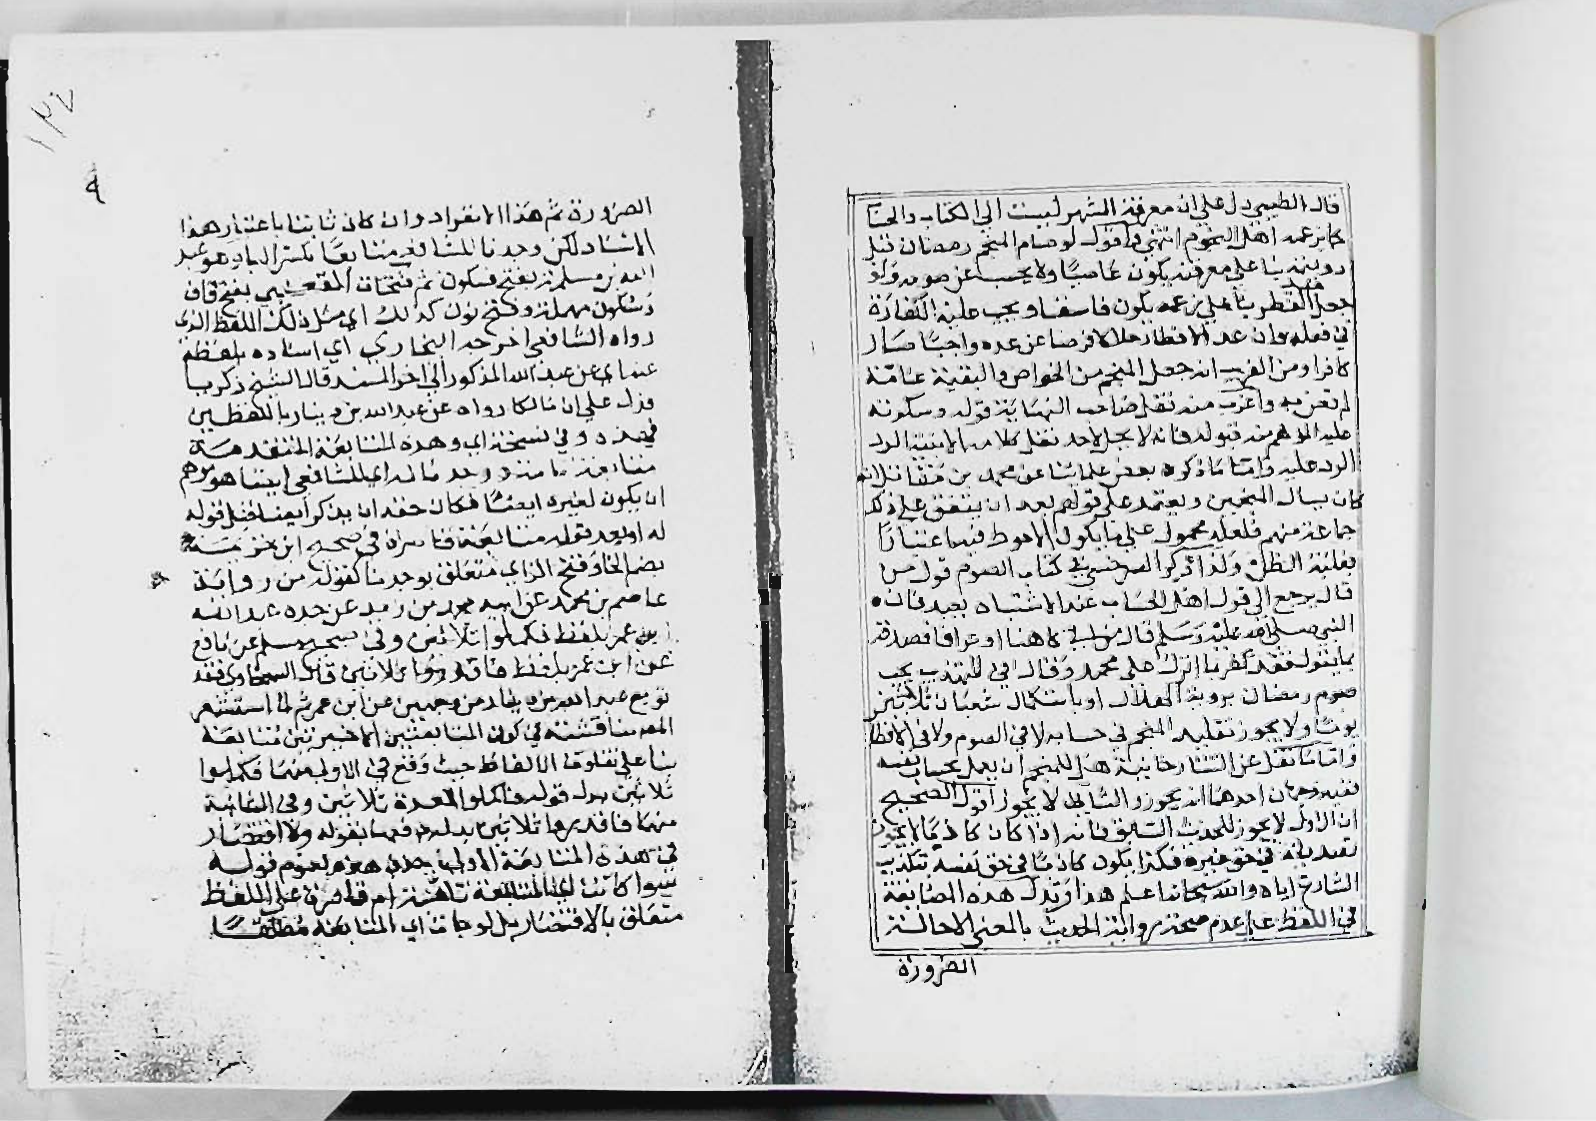 قال الطيبي دل على ان معرفة الشهر ليست الى الكتاب والحسا
كما يزعمه اهل النجوم انتهى واقول لو صام المنجم رمضان قبل
رويته بنا على معرفته يكون عاصيا ولا يحسب عن صومه ولو
جعل الفطر بنا على زعمه يكون فاسقا ويجب عليه الكفارة
في فعله وان عد الافطار حلالا فرضا عن عده واجبا صار
كافرا ومن الغريب انه جعل المنجم من الخواص والبقية عامة
لم تعن به واغرب منه نقل صاحب النهاية قوله وسكوته
عليه الموهم منه قبوله فانه لا يحل لاحد نقل كلامه الا بنية الرد
الرد عليه واما ما ذكره بعض علمائنا عن محمد بن مقاتل انه
كان يسال المنجمين ويعتمد على قولهم بعد ان يتفق على ذلك
جماعة منهم فلعله محمول على ما يكون الاحوط فيه اعتبارا
بغلبة الظن ولذا ذكر السرخسي في كتاب الصوم قول من
قال يرجع الى قول اهل الحساب عند الاشتباه بعيد فان
النبي صلى الله عليه وسلم قال من اتى كاهنا او عرافا فصدقه
بما يقول فقد كفر بما انزل على محمد وقال في المهذب يجب
صوم رمضان بروية الهلال او باستكمال شعبان ثلاثين
يوما ولا يجوز تقليد المنجم في حسابه لا في الصوم ولا في الافطا
واما ما نقل عن التتارخانية هل للمنجم ان يعمل بحساب نفسه
ففيه وجهان احدهما انه يجوز والثاني لا يجوز اقول الصحيح
ان الاول لا يجوز للحديث السابق فانه اذا كان كاذبا لا يجوز
تصديقه في حق غيره فكذا يكون كاذبا في حق نفسه بتكذيب
الشارع اياه والله سبحانه اعلم هذا وتدل هذه المتابعة
في اللفظ على عدم صحة رواية الحديث بالمعنى الا حالة
الضرورة
١٣٧
٩
الضرورة ثم هذا الانفراد وان كان ثابتا باعتبار هذا
الاسناد لكن وجدنا للشافعي متابعا بكسر الباء وهو عبد
الله بن مسلمة بفتح فسكون ثم فتحات القعنبي بفتح قاف
وسكون مهملة وفتح نون كذلك اي مثل ذلك اللفظ الذي
رواه الشافعي اخرجه البخاري اي اسناده بلفظه
عنه اي عن عبد الله المذكور الى اخر المسند قال الشيخ زكريا
فدل على ان مالكا رواه عن عبد الله بن دينار باللفظين
وفي نسخة اي وهذه المتابعة المتقدمة
متابعة تامة ووجدنا له اي للشافعي ايضا هو يوهم
ان يكون لغيره ايضا فكان حقه ان يذكر ايضا قبل قوله
له او بعد قوله متابعة قاصرة في صحيح ابن خزيمة
بضم الخاء وفتح الزاي متعلق بوجدنا كقوله من رواية
عاصم بن محمد عن ابيه محمد بن زيد عن جده عبد الله
ابن عمر بلفظ فكملوا ثلاثين وفي صحيح مسلم عن نافع
عن ابن عمر بلفظ فاقدروا ثلاثين قال السخاوي فقد
توبع عبد الله بن دينار من وجهين عن ابن عمر ثم لما استشعر
المص مناقشة في كون المتابعتين الاخيرتين متابعة
بنا على تفاوت الالفاظ حيث وقع في الاولى منهما فكملوا
ثلاثين بدل قوله فاكملوا العدة ثلاثين وفي الثانية
منهما فاقدروا ثلاثين بدله دفعها بقوله ولا اقتصار
في هذه المتابعة
سوا كانت اي المتابعة تامة ام قاصرة على اللفظ
متعلق بالاقتصار بل لو جات اي المتابعة مطلقا